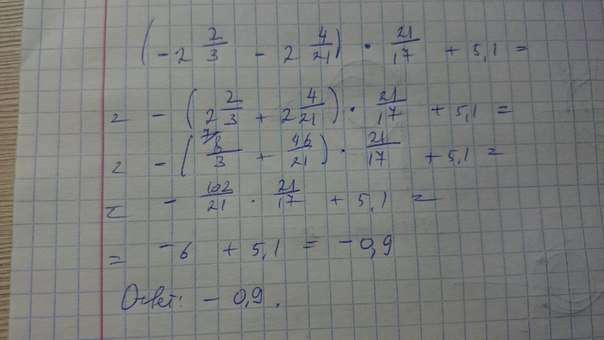 (-2 2/3 - 2 4/21) · 21/17 + 5,1 =
= -(2 2/3 + 2 4/21) · 21/17 + 5,1 =
= -(7/ 8/3 + 46/21) · 21/17 + 5,1 =
= -102/21 · 21/17 + 5,1 =
= -6 + 5,1 = -0,9
Ответ: -0,9.